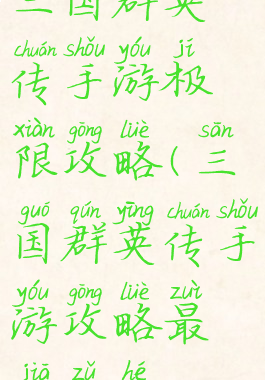 三国群英
chuán shǒu yóu jí
传手游极
xiàn gōng lüè sān
限攻略(三
guó qún yīng chuán shǒu
国群英传手
yóu gōng lüè zuì
游攻略最
jiā zǔ hé